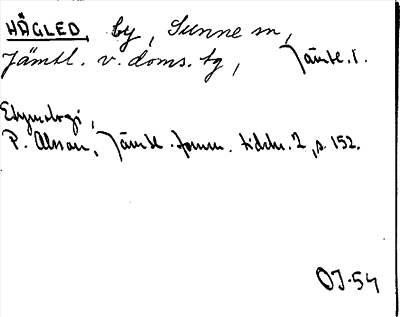 HÄGLED, by, Sunne sn,
Jämtl. v. doms. tg, Jämtl. l.
Etymologi,
P. Olsson, Jämtl. fornm. tidskr. 2, s. 152.
OJ-54